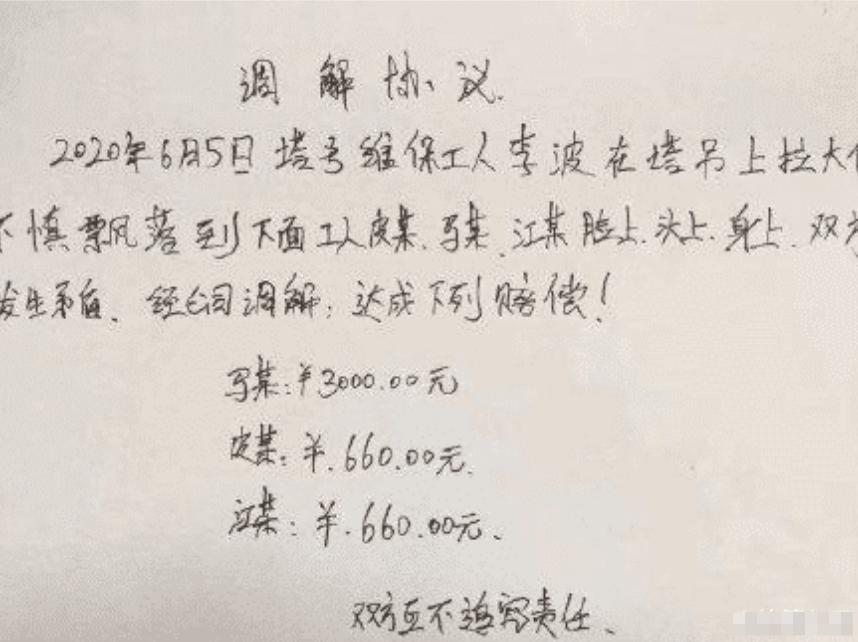 调解协议.
2020年6月5日塔吊维保工人李波在塔吊上拉大
不慎飘落到下面工人皮某、马某、江某脸上、头上、身上、双方
发生矛盾、经公司调解;达成下列赔偿!
马某:¥3000.00元
皮某:¥.660.00元.
江某:¥.660.00元、
双方互不追究责任、